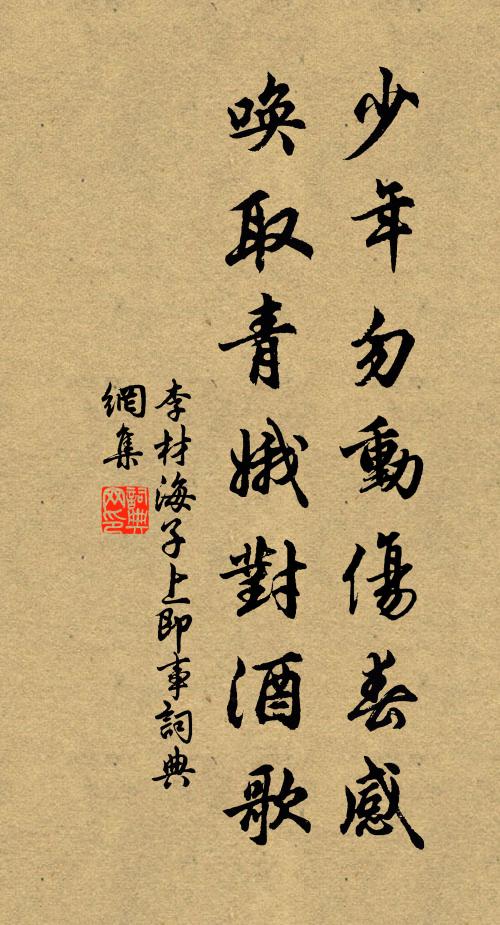 少年勿動傷春感
喚取青娥對酒歌
李材海子上即事詞典
網集
詞典
网印